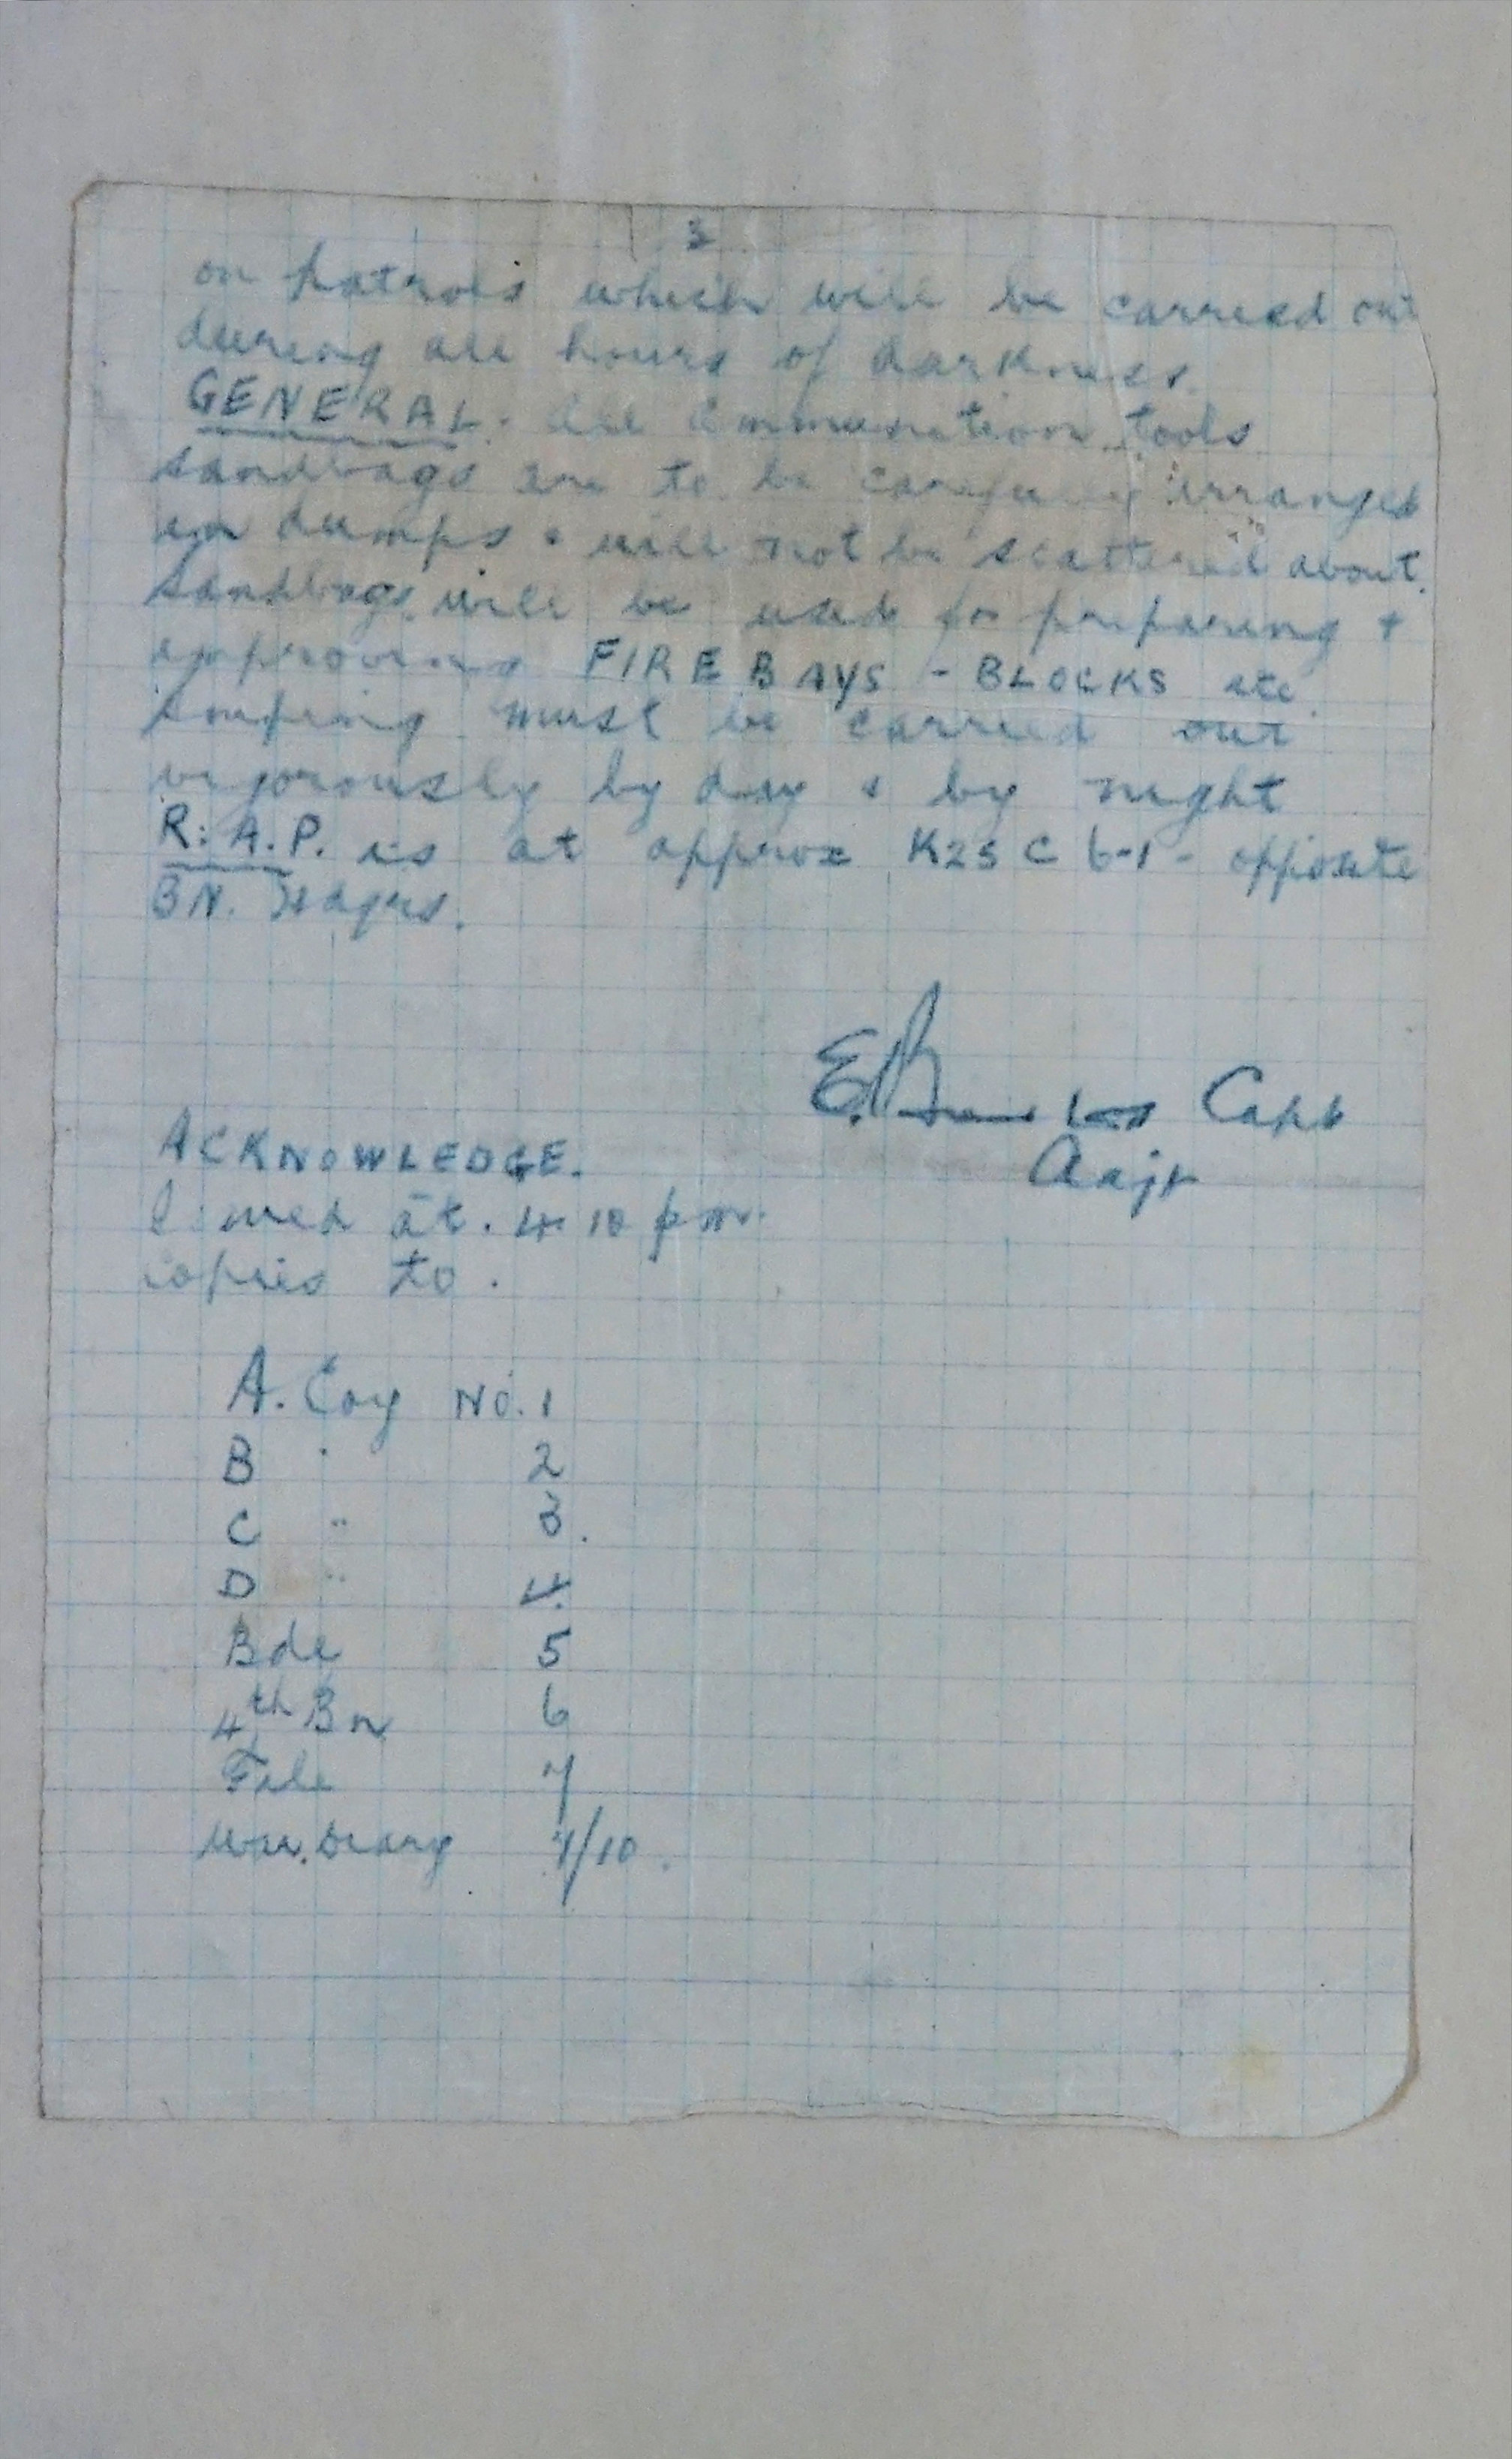 3
on patrols which will be carried out
during all hours of darkness.
GENERAL. All ammunition tools
sandbags are to be carefully arranged
in dumps & will not be scattered about.
Sandbags will be used for preparing +
improving FIRE BAYS - BLOCKS etc.
Sniping must be carried out
vigorously by day & by night
R.A.P. is at approx K25 C 6-1 - opposite
BN. Hdqrs.
E. Capt
Adjt
ACKNOWLEDGE.
Issued at. 4.10 pm.
Copies to.
A. Coy No. 1
B " 2
C " 3.
D " 4.
Bde 5
4th Bn 6
File 7
War. Diary 9/10.